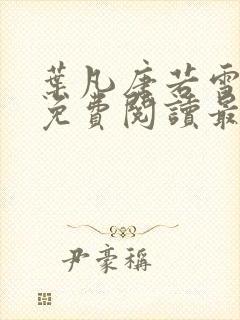 葉凡唐若雪
免費閱讀最
尹豪稱